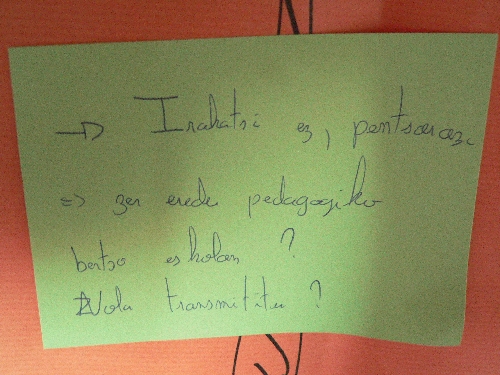 → Irakatsi ez, pentsarazi
=> zer eredu pedagogiko
bertso eskolan ?
Nola transmititu ?